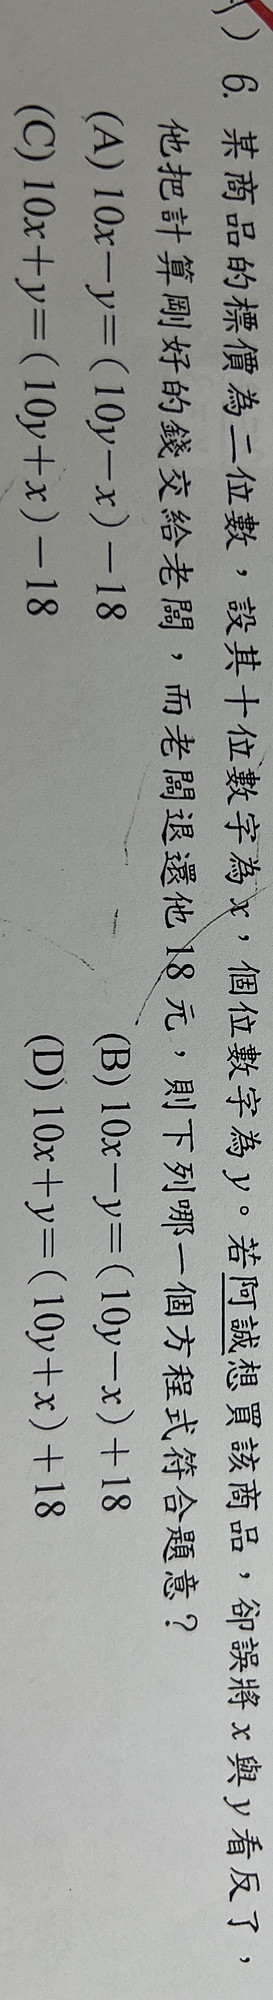 ) 6. 某商品的標價為二位數，設其十位數字為x，個位數字為y。若阿誠想買該商品，卻誤將x與y看反了，
他把計算剛好的錢交給老闆，而老闆退還他18元，則下列哪一個方程式符合題意？
(A) 10x－y＝(10y－x)－18 (B) 10x－y＝(10y－x)＋18
(C) 10x＋y＝(10y＋x)－18 (D) 10x＋y＝(10y＋x)＋18